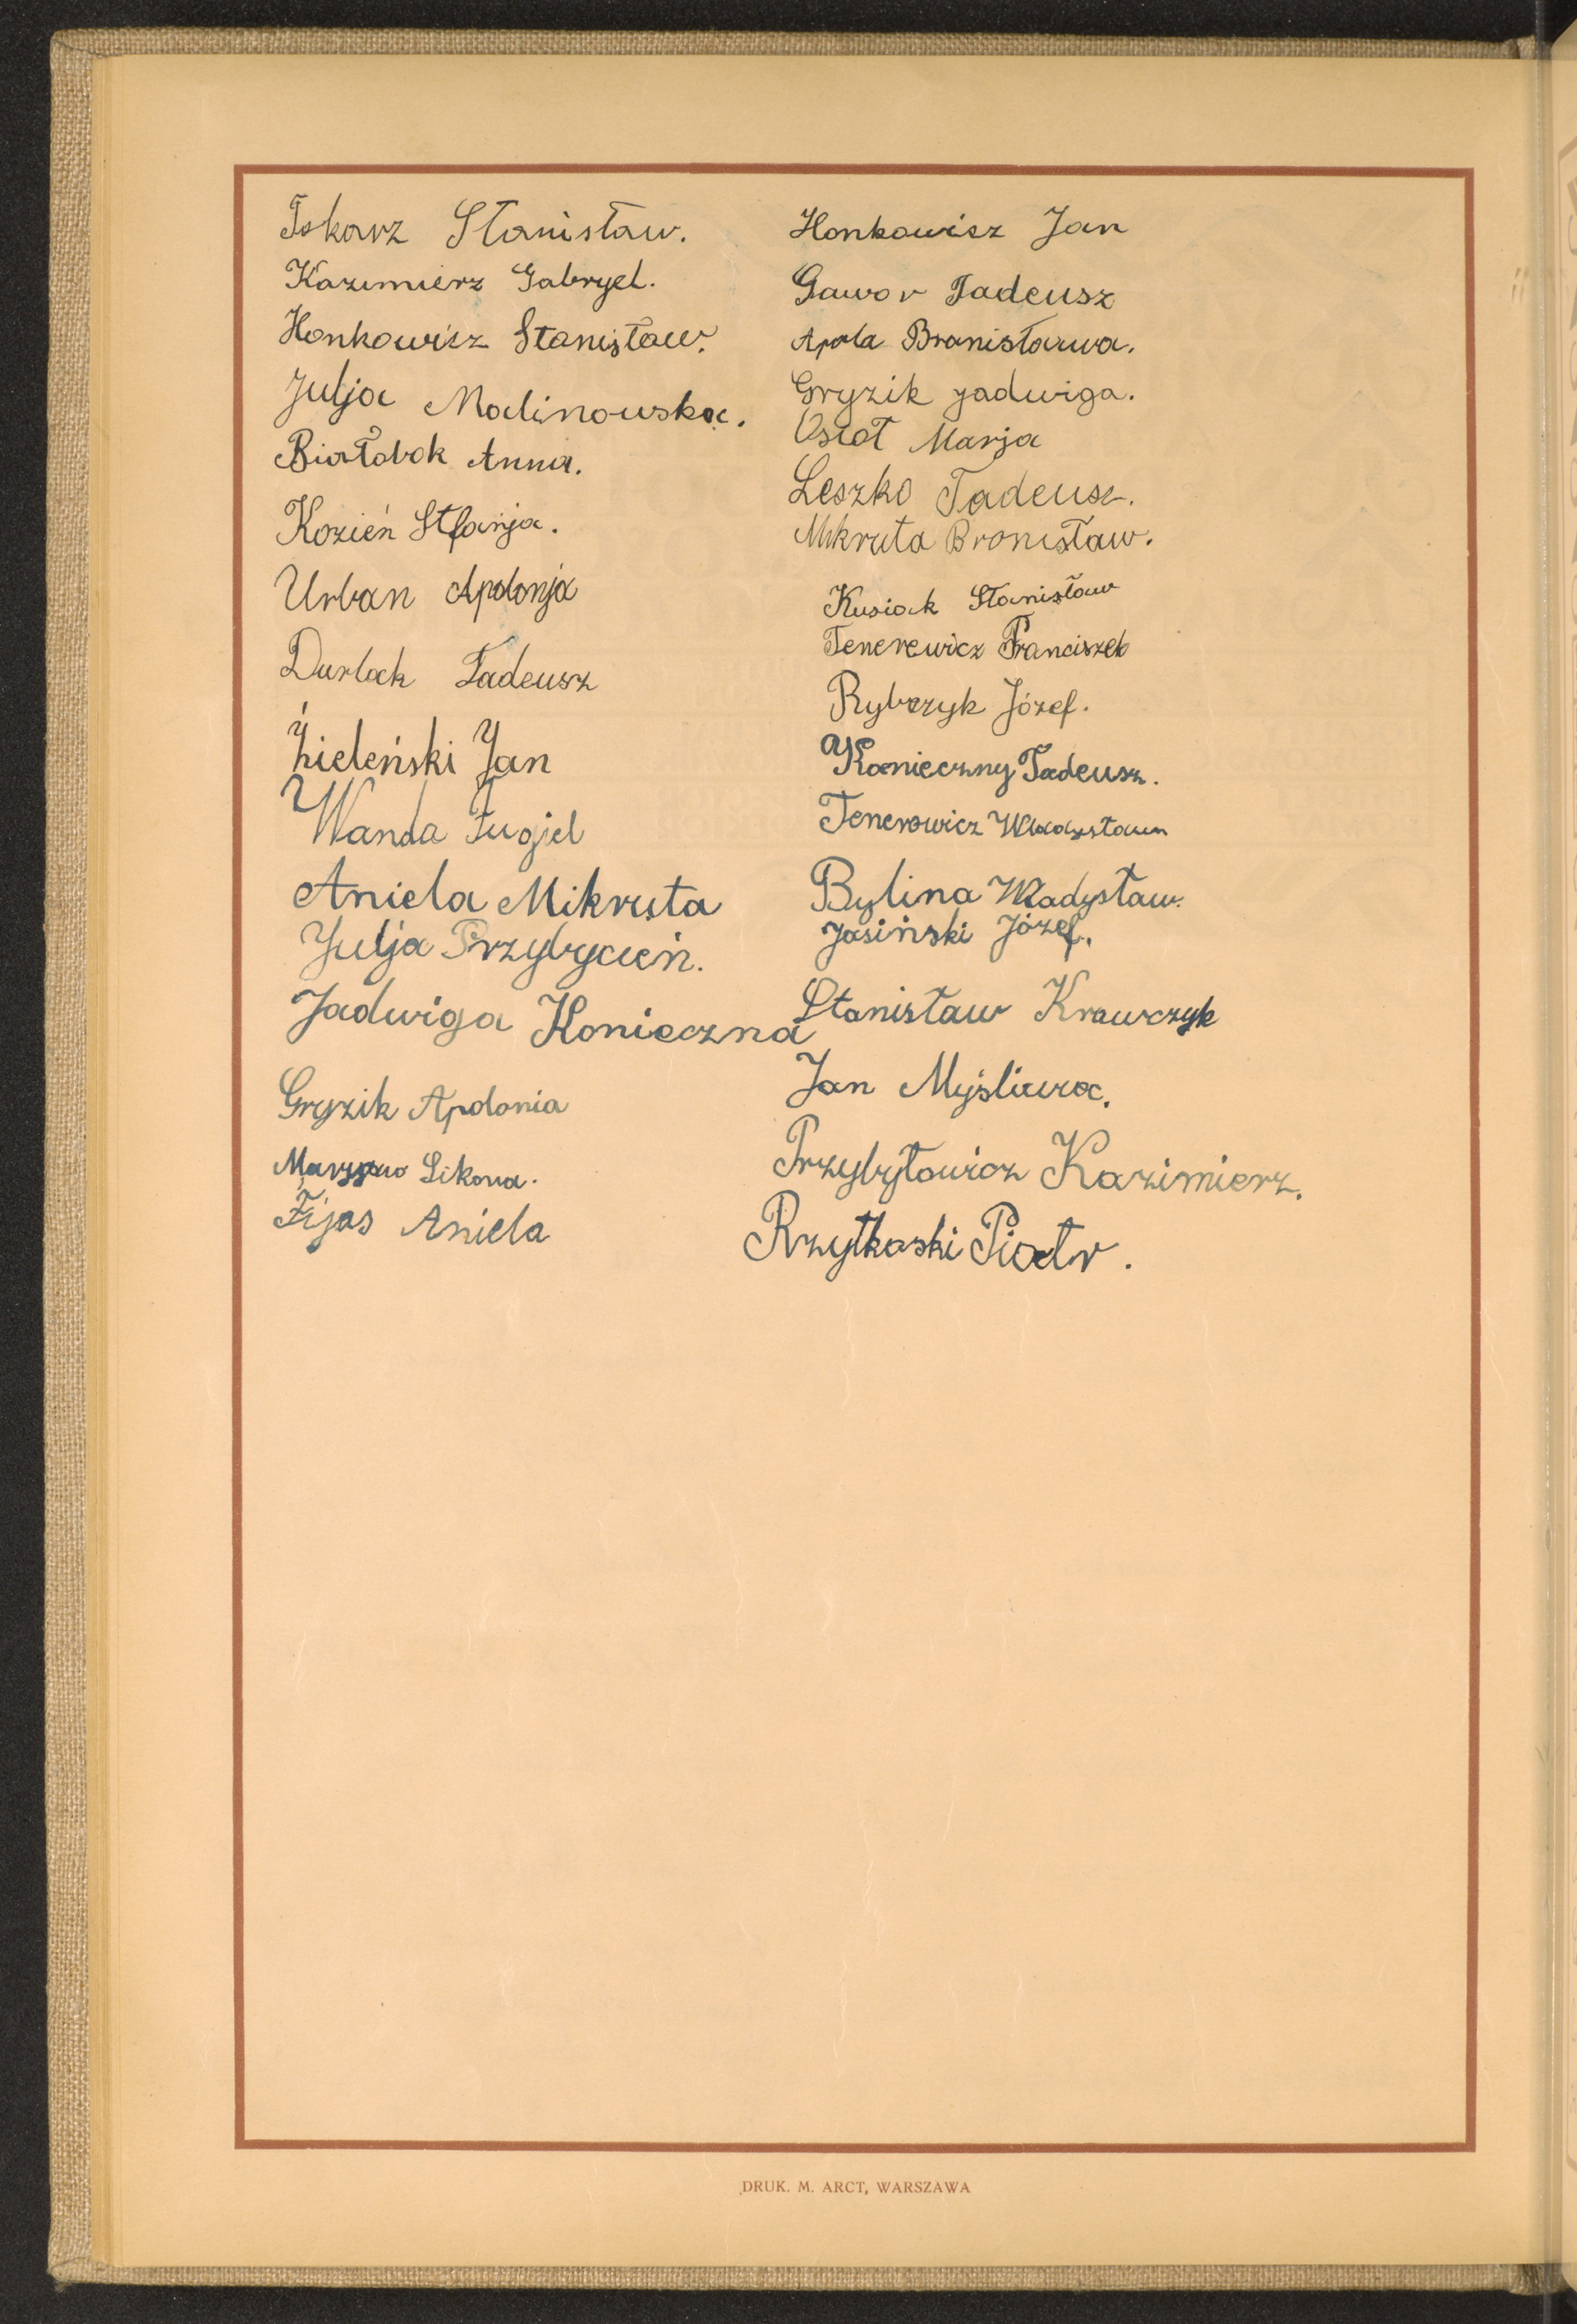 Iskarz Stanisław.
Kazimierz Gabryel.
Honkowisz Stanisław.
Julja Malinowska.
Białobok Anna.
Kozień Stfanja.
Urban Apolonja
Durlak Tadeusz
Zieleński Jan
Wanda Fugiel
Aniela Mikruta
Julja Przybycień.
Jadwiga Konieczna
Gryzik Apolonia
Likova.
Fijas Aniela
Honkowisz Jan
Gawor Tadeusz
Apola Bronisława.
Gryzik Jadwiga.
Osioł Marja
Leszko Tadeusz.
Mikruta Bronisław.
Kusiak Stanisław
Tenerewicz Franciszek
Rybczyk Józef.
Konieczny Tadeusz.
Tenerowicz Władysław
Bylina Władysław.
Jasiński Józef.
Stanisław Krawczyk
Jan Myśliwa.
Przybyłowicz Kazimierz.
Rzytkoski Piotr.
DRUK. M. ARCT, WARSZAWA